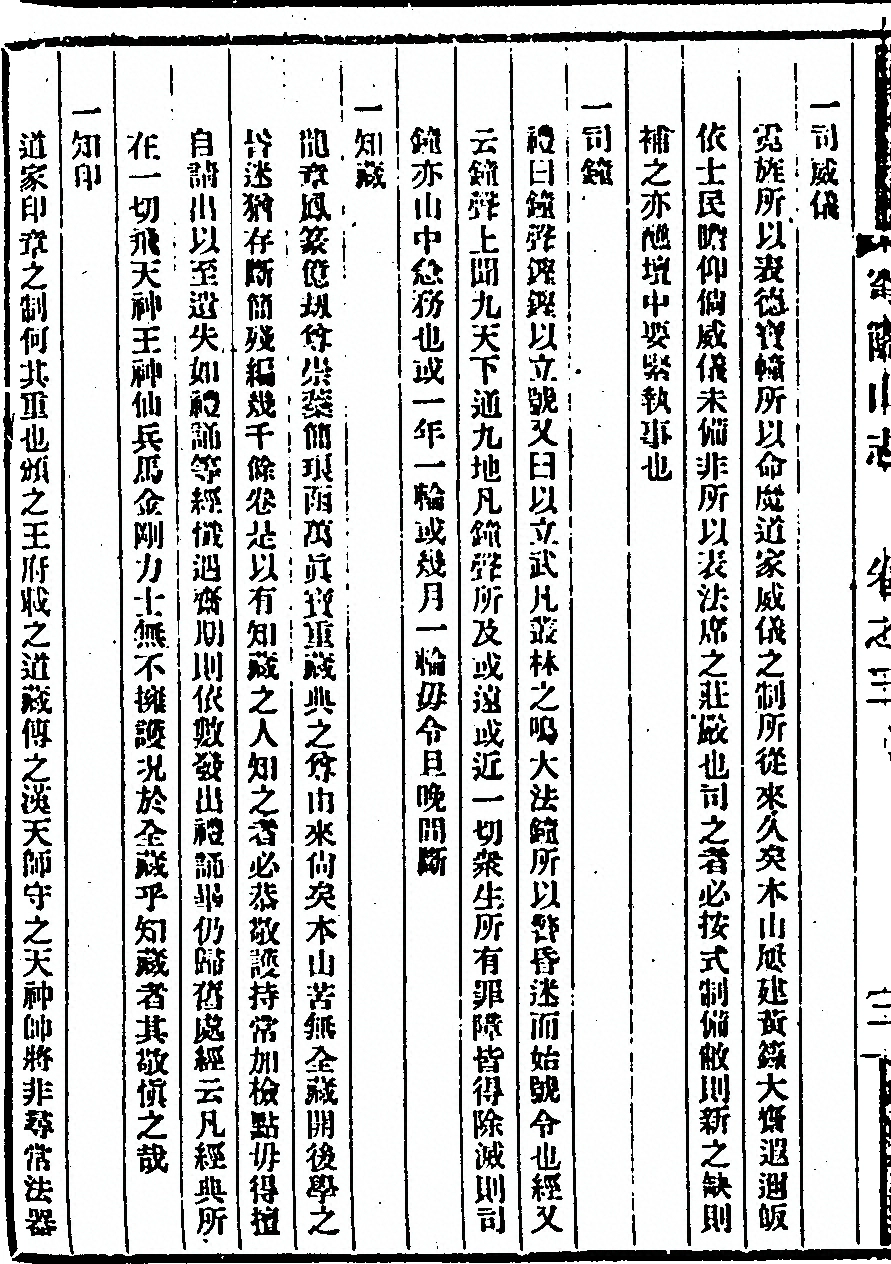 一司威儀
霓旌所以表德寶幢所以命魔道家威儀之制所從來久矣本山屢建黃籙大齋遐邇皈
依士民瞻仰倘威儀未備非所以表法席之莊嚴也司之者必按式制備敝則新之缺則
補之亦醮壇中要緊執事也
一司鐘
禮曰鐘聲鏗鏗以立號又曰以立武凡叢林之鳴大法鐘所以警昏迷而始號令也經又
云鐘聲上聞九天下通九地凡鐘聲所及或遠或近一切衆生所有罪障皆得除滅則司
鐘亦山中急務也或一年一輪或幾月一輪毋令旦晚間斷
一知藏
龍章鳳篆億劫尊崇蘂簡琅函萬眞寶重藏典之尊由來尙矣本山苦無全藏開後學之
昏迷猶存斷簡殘編幾千餘卷是以有知藏之人知之者必恭敬護持常加檢點毋得擅
自請出以至遺失如禮誦等經懺遇齋期則依數發出禮誦畢仍歸舊處經云凡經典所
在一切飛天神王神仙兵馬金剛力士無不擁護况於全藏乎知藏者其敬愼之哉
一知印
道家印章之制何其重也頒之王府載之道藏傳之漢天師守之天神帥將非尋常法器
山志 卷之三